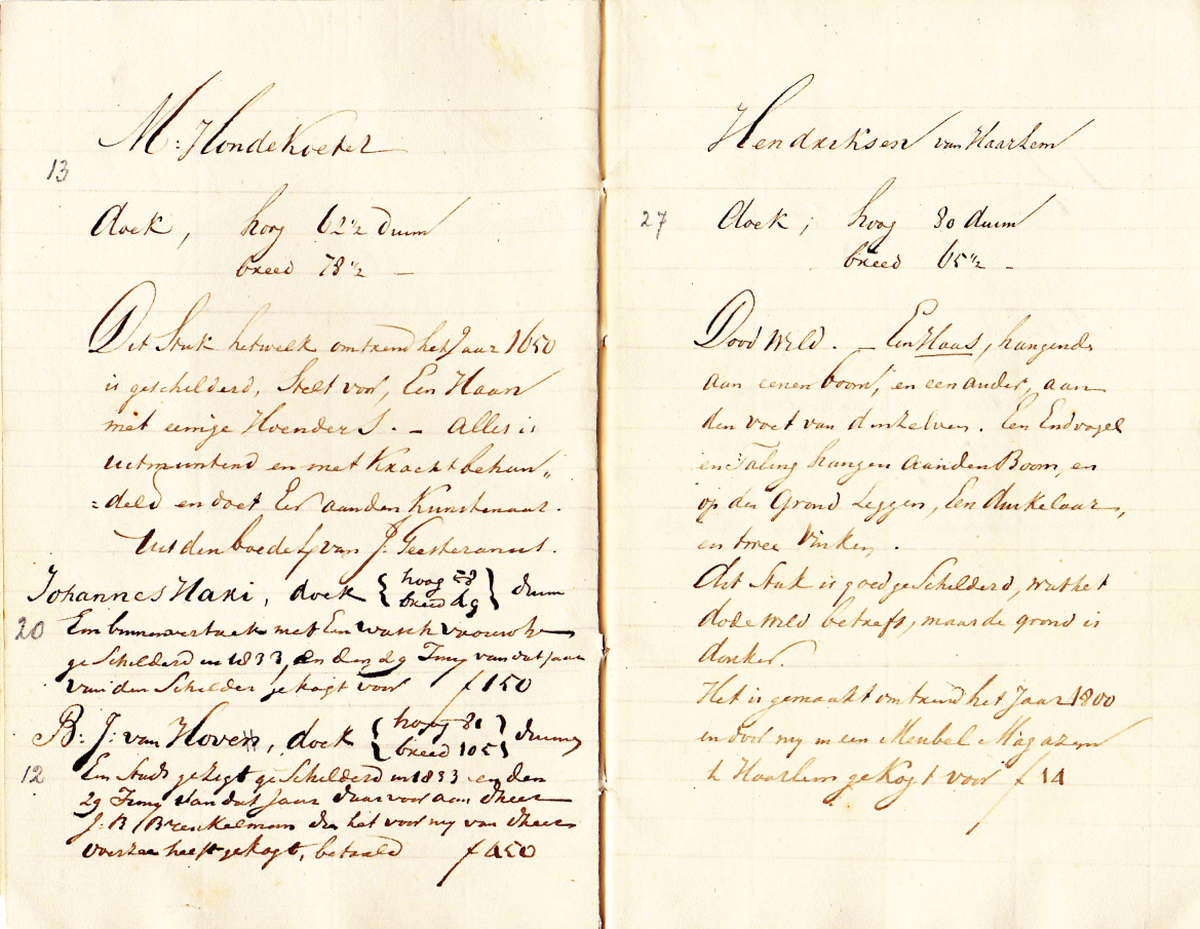 M: Hondekoeter
13
doek, hoog 62 1/2 duim
breed 78 1/2 —
Dit Stuk hetwelk omtrend het Jaar 1650
is geschilderd, Stelt voor, Een Haan
met eenige Hoenders. — Alles is
uitmuntend en met Kracht behan„
=deld en doet Eer aan den Kunstenaar.
Uit den boedel van J. Geesteranus.
Johannes Hari, doek { hoog 58 } duim
breed 49
20 Een binnenvertrek met Een wasch vrouwtje
geschilderd in 1833, en den 29 Juny van dat jaar
van den Schilder gekogt voor f 150
B: J: van Hoven, doek { hoog 81 } duim
breed 105
12 Een Stads gezigt geschilderd in 1833 en den
29 Juny van dat jaar daarvoor aan dheer
J: B: Breukelman die het voor my van dheer
voorzee heeft gekogt, betaald f 450
Hendriksen van Haarlem
27 doek, hoog 80 duim
breed 65 1/2 —
Dood Wild. — Een Haas, hangende
aan eenen boom, en een ander, aan
den voet van denzelven. Een Endvogel
en Taling hangen aan den Boom, en
op den Grond Leggen, Een duikelaar,
en twee Vinken.
dit Stuk is goed geschilderd, wat het
dode Wild betreft, maar de grond is
donker.
Het is gemaakt omtrend het Jaar 1800
en door my in een Meubel Magazyn
te Haarlem gekogt voor f 14